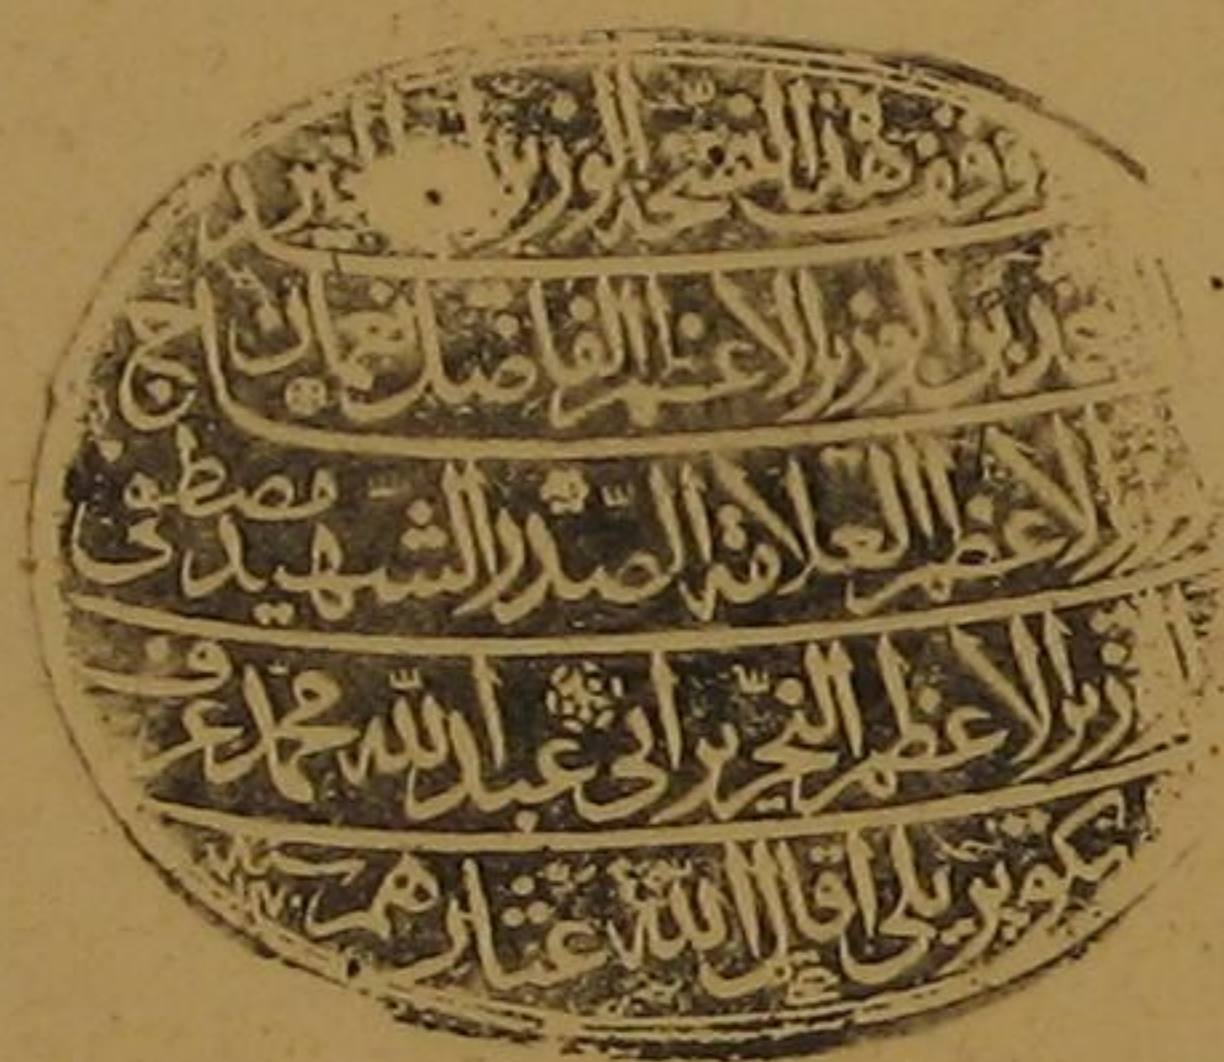 وقف هذا لنسخة الوزير
بن الوزير الاعظم الفاضل نعمان اج
الاعظم العلامة الصدر الشهيد مصطفى
زير الاعظم النحرير ابي عبد الله محمد عرف
بكوپريلي اقال الله عثارهم